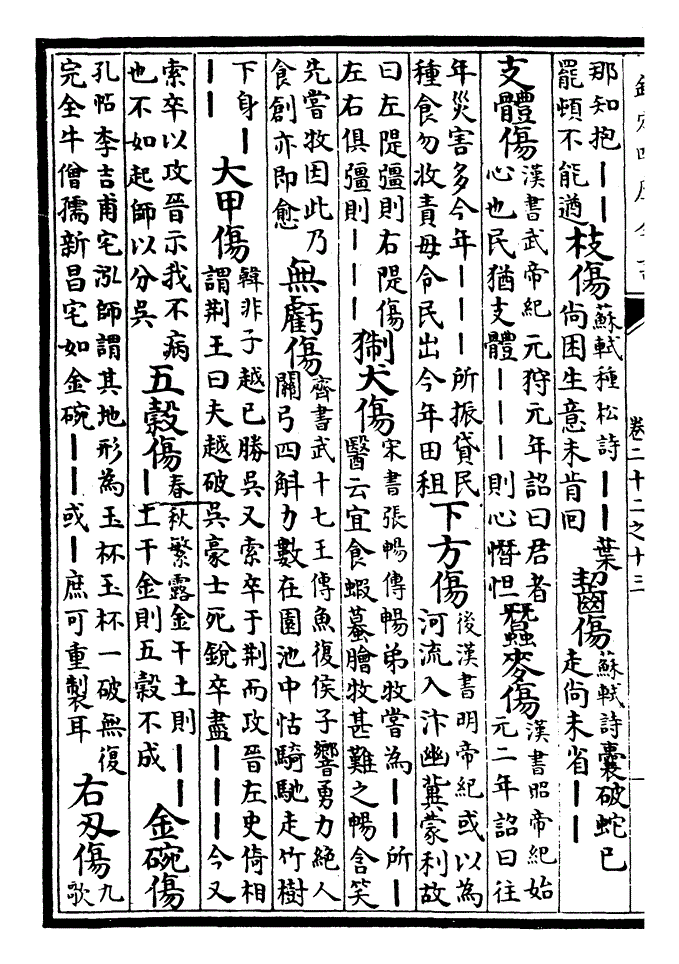 欽定四庫全書
卷二十二之十三
那知抱｜｜
罷頓不能遒
枝傷
蘇軾種松詩｜｜葉
尚困生意未肯回
齧傷
蘇軾詩囊破蛇已
走尚未省｜｜
支體傷
漢書武帝紀元狩元年詔曰君者
心也民猶支體｜｜｜則心憯怛
蠶麥傷
漢書昭帝紀始
元二年詔曰往
年災害多今年｜｜｜所振貸民
種食勿收責毋令民出今年田租
下方傷
後漢書明帝紀或以為
河流入汴幽冀蒙利故
曰左隄彊則右隄傷
左右俱彊則｜｜｜
猘犬傷
宋書張暢傳暢弟牧嘗為｜｜所｜
醫云宜食蝦蟇膾牧甚難之暢含笑
先嘗牧因此乃
食創亦即愈
無虧傷
齊書武十七王傳魚復侯子響勇力絶人
關弓四斛力數在園池中怗騎馳走竹樹
下身｜
｜｜
大甲傷
韓非子越已勝吳又索卒于荆而攻晉左史倚相
謂荆王曰夫越破吳豪士死銳卒盡｜｜｜今又
索卒以攻晉示我不病
也不如起師以分吳
五穀傷
春秋繁露金干土則｜｜
｜土干金則五穀不成
金碗傷
孔帖李吉甫宅泓師謂其地形為玉杯玉杯一破無復
完全牛僧孺新昌宅如金碗｜｜或｜庶可重製耳
右刃傷
九
歌